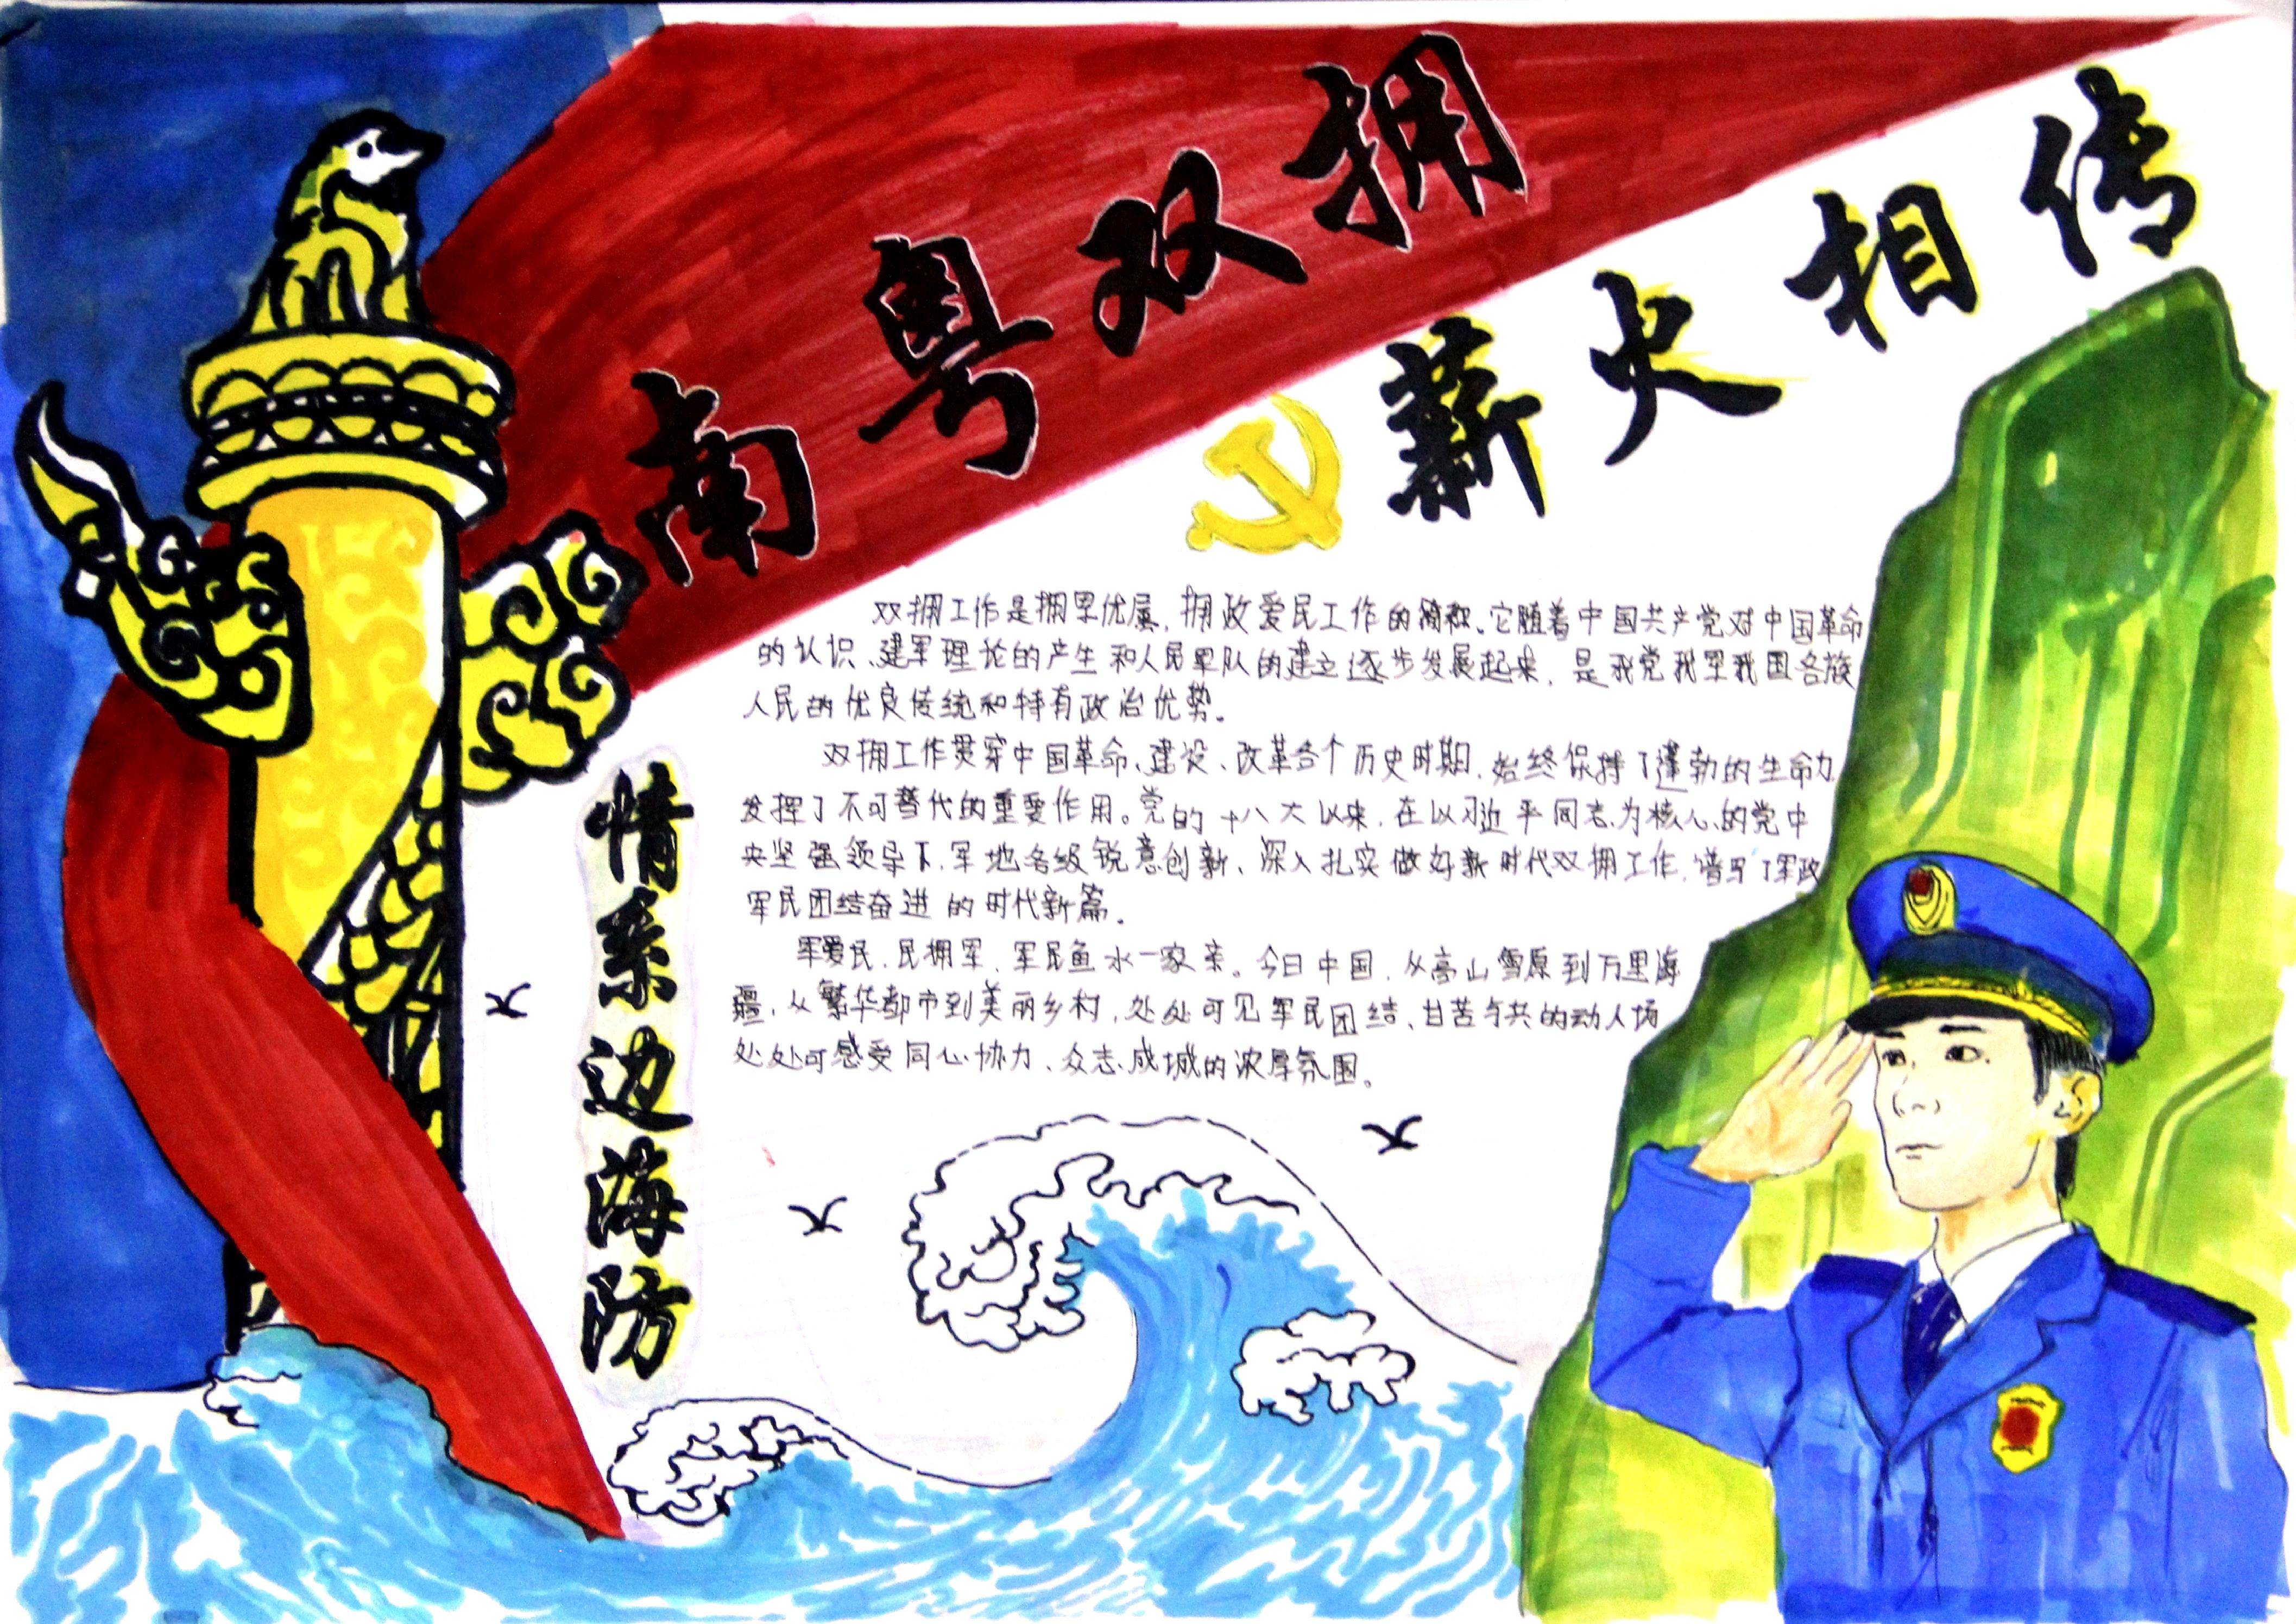 南粤双拥
薪火相传
双拥工作是拥军优属，拥政爱民工作的简称。它随着中国共产党对中国革命
的认识、建军理论的产生和人民军队的建立逐步发展起来，是我党我军我国各族
人民的优良传统和特有政治优势。
双拥工作贯穿中国革命、建设、改革各个历史时期，始终保持了蓬勃的生命力
发挥了不可替代的重要作用。党的十八大以来，在以习近平同志为核心的党中
央坚强领导下，军地各级锐意创新、深入扎实做好新时代双拥工作，谱写了军政
军民团结奋进的时代新篇。
军爱民，民拥军，军民鱼水一家亲。今日中国，从高山雪原到万里海
疆，从繁华都市到美丽乡村，处处可见军民团结、甘苦与共的动人场
处处可感受同心协力、众志成城的浓厚氛围。
情系边海防